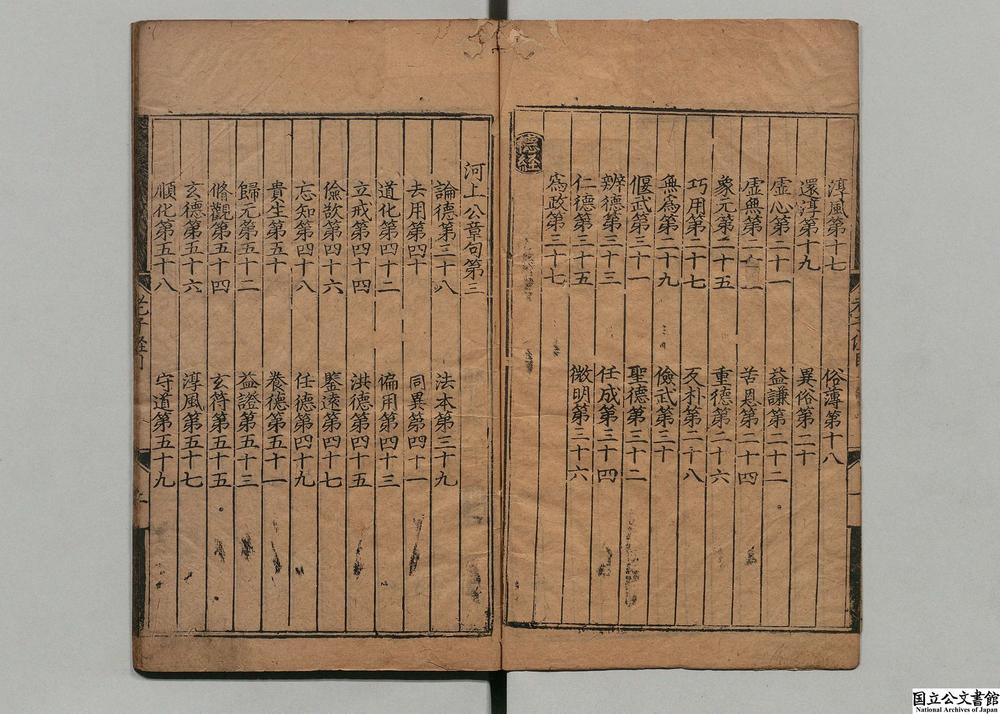 淳風第十七　俗薄第十八
還淳第十九　異俗第二十
虛心第二十一　益謙第二十二
虛無第二十　苦恩第二十四
象元第二十五　重德第二十六
巧用第二十七　反朴第二十八
無爲第二十九　儉武第三十
偃武第三十一　聖德第三十二
辨德第三十三　任成第三十四
仁德第三十五　微明第三十六
爲政第三十七
德経
河上公章句第三
論德第三十八　法本第三十九
去用第四十　同異第四十一
道化第四十二　偏用第四十三
立戒第四十四　洪德第四十五
儉欲第四十六　鑒遠第四十七
忘知第四十八　任德第四十九
貴生第五十　養德第五十一
歸元第五十二　益證第五十三
脩觀第五十四　玄符第五十五
玄德第五十六　淳風第五十七
順化第五十八　守道第五十九
老子経
国立公文書館
National Archives of Japan